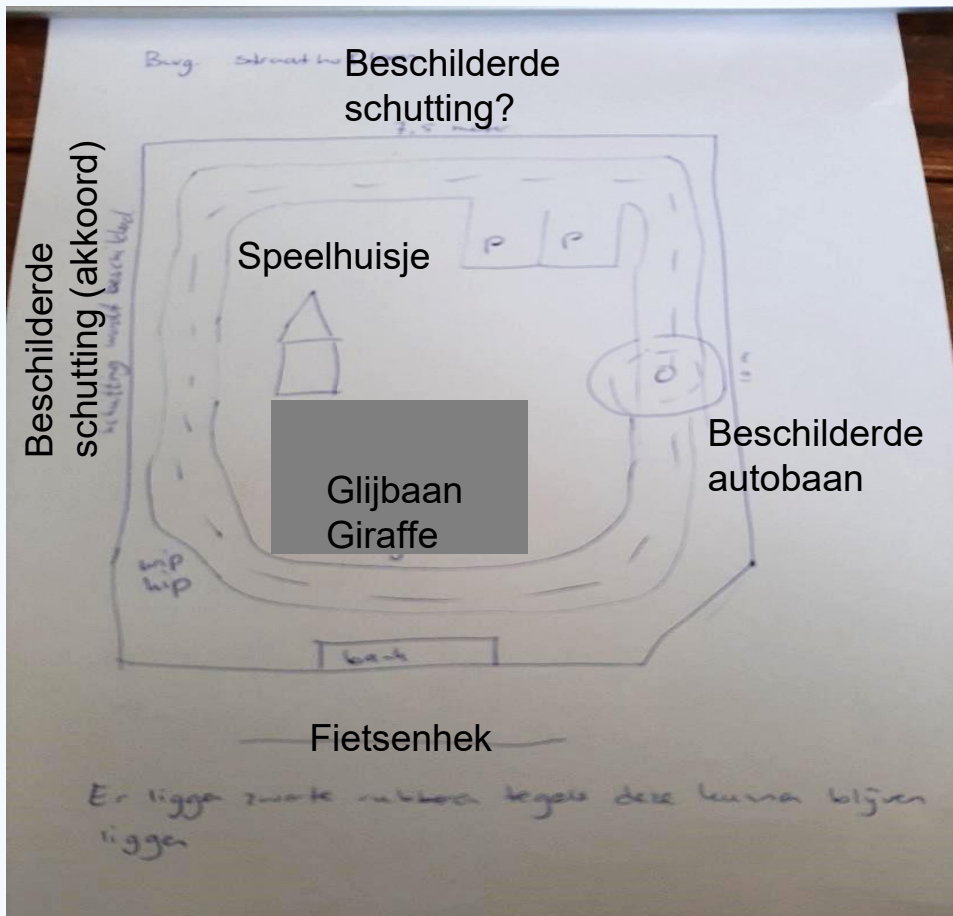 Burg.
Beschilderde
schutting?
7,5 meter
Beschilderde
schutting (akkoord)
schutting wordt beschilderd
Speelhuisje
P P
Beschilderde
autobaan
Glijbaan
Giraffe
wip
kip
bank
Fietsenhek
Er liggen zwarte rubberen tegels deze kunnen blijven
liggen